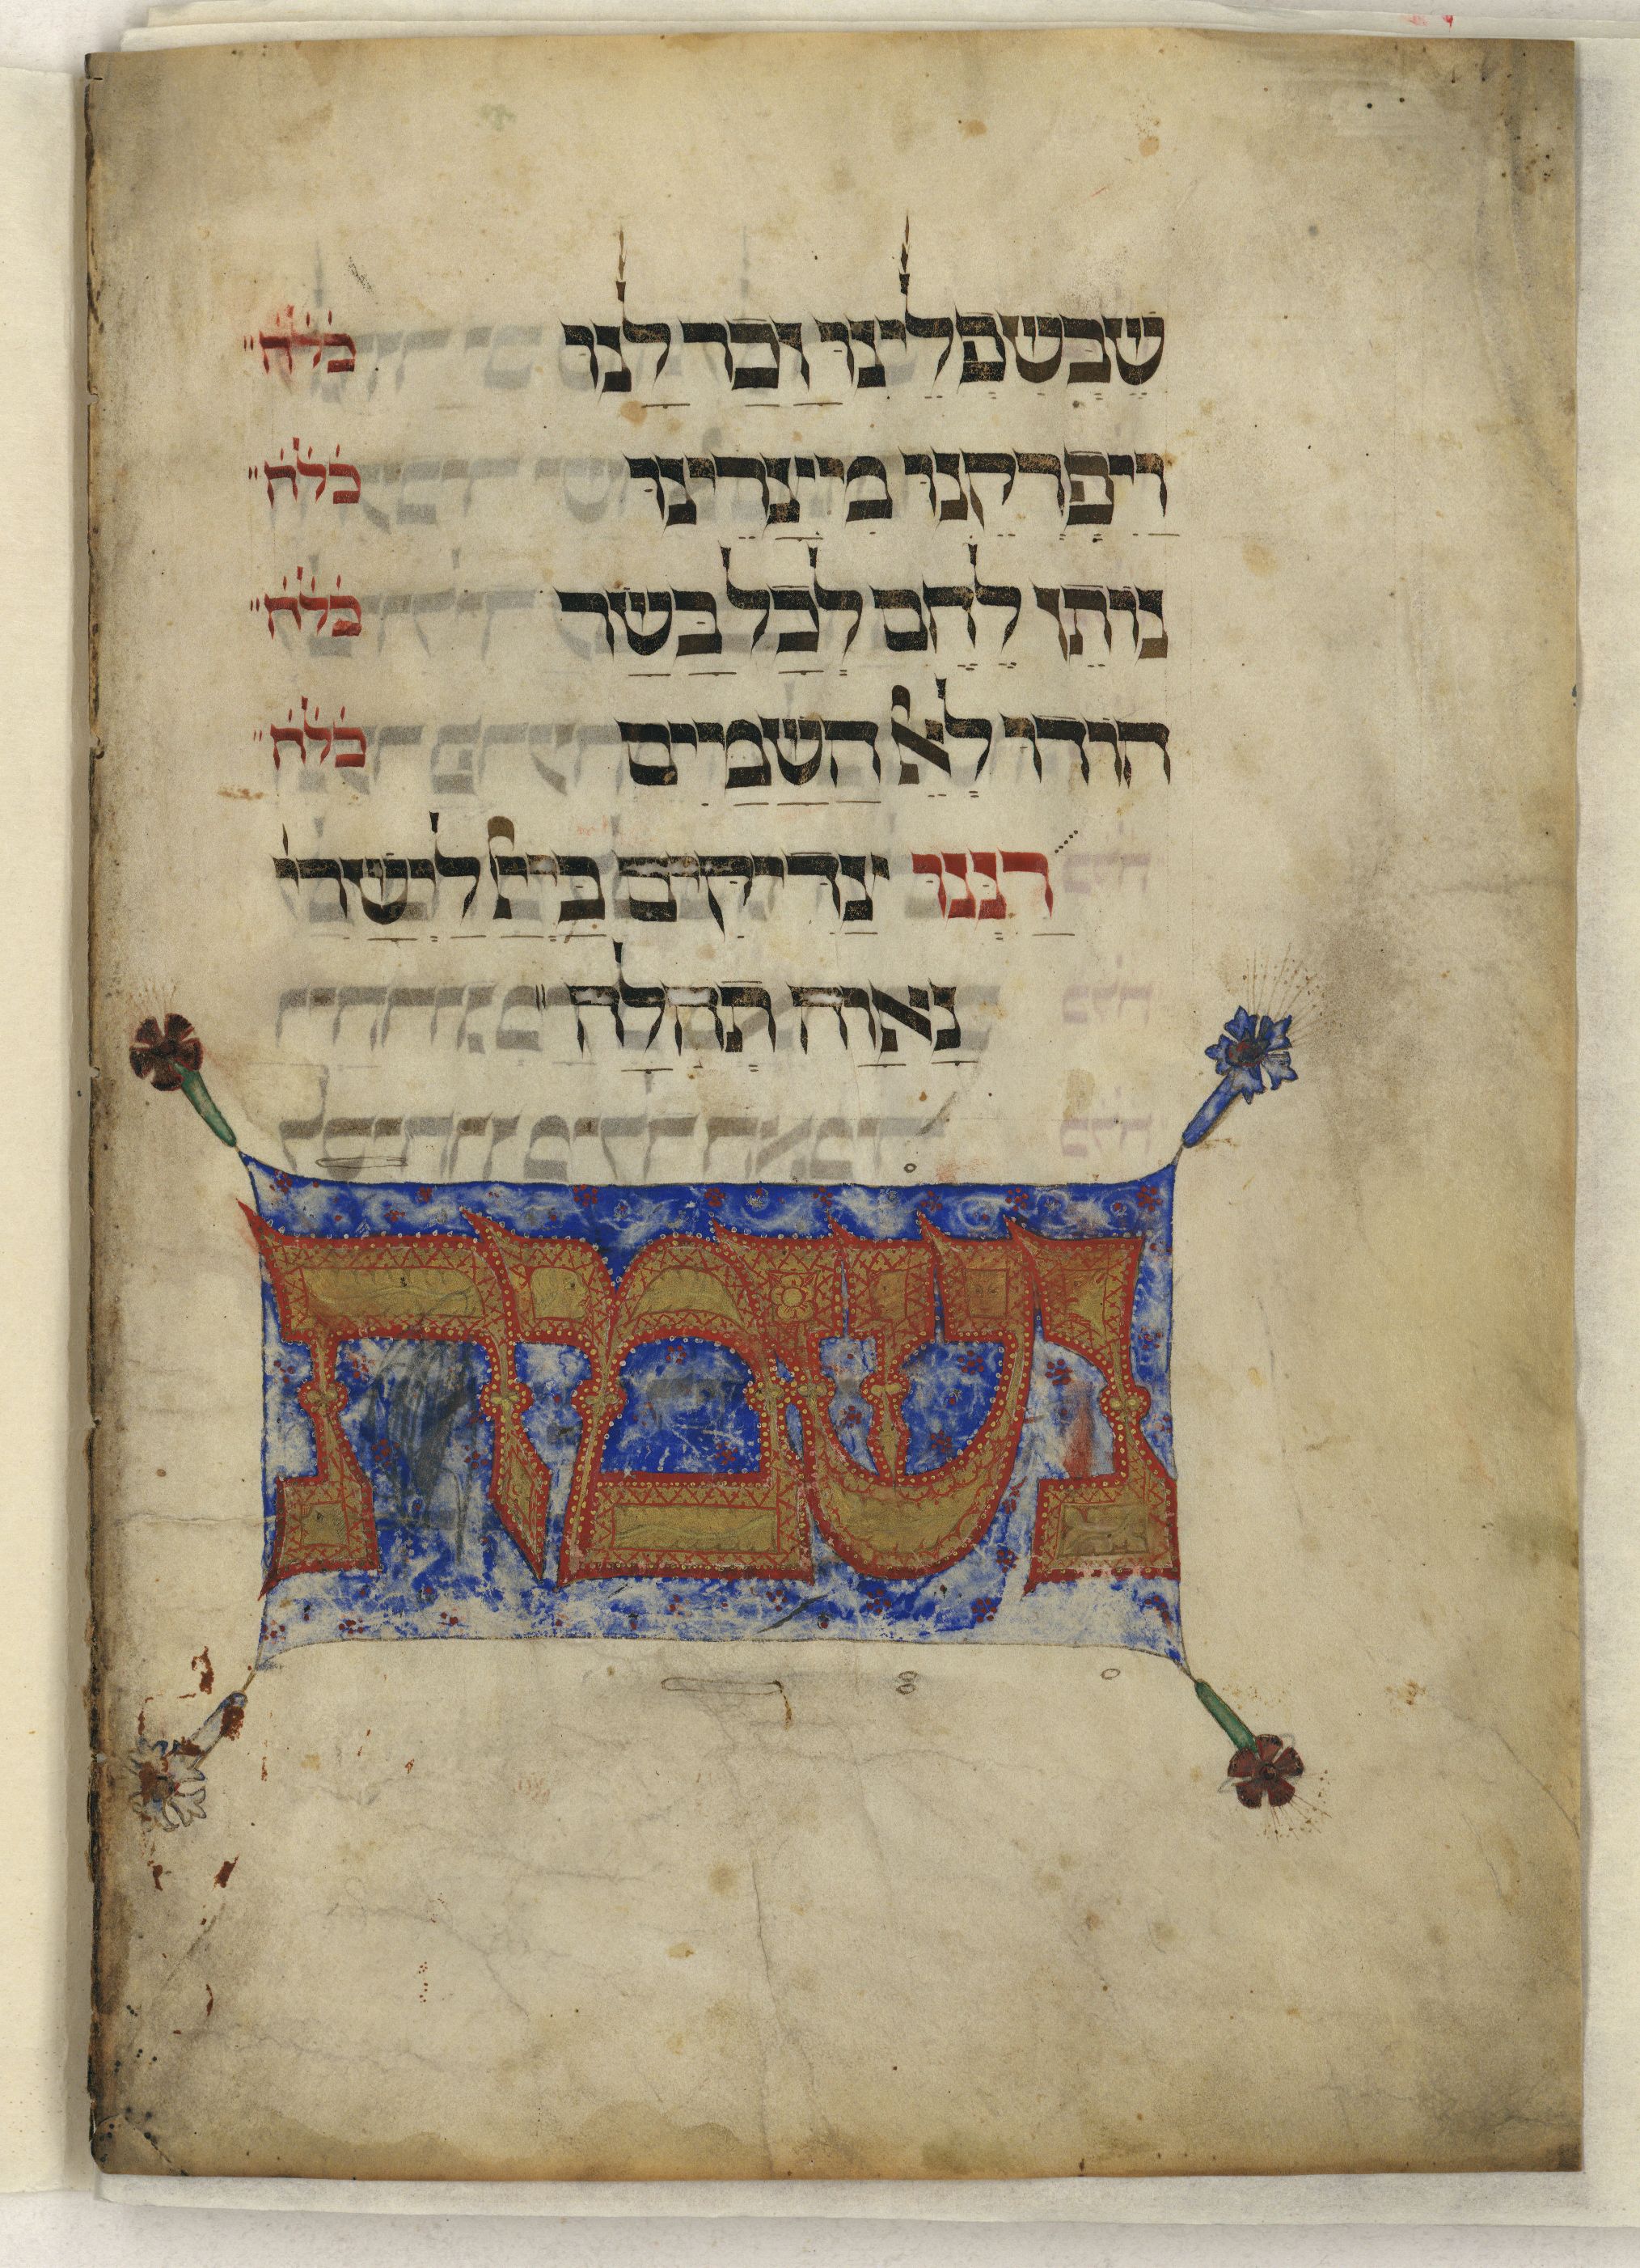 שבשפלינו זכר לנו כל״ח
ויפרקנו מיצרינו כל״ח
נותן לחם לכל בשר כל״ח
הודו לאל השמים כל״ח
רננו צדיקים ביי לישרי
נאוה תהלה
נשמת